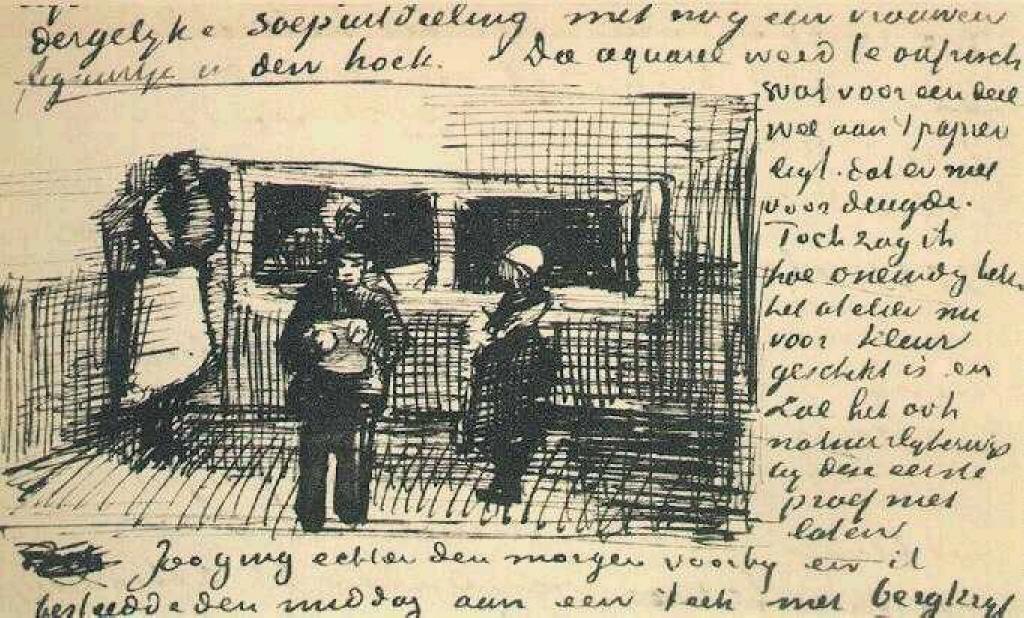 dergelyke soepuitdeeling met nog een vrouwen
figuurtje in den hoek. De aquarel werd te onfrisch
wat voor een deel
wel aan 't papier
ligt. dat er niet
voor deugde.
Toch zag ik
hoe oneindig beter
het atelier nu
voor kleur
geschikt is en
zal het ook
natuurlykerwys
by deze eerste
proef niet
laten
Zoo ging echter den morgen voorby en ik
besteedde den middag aan een teek met bergkryt